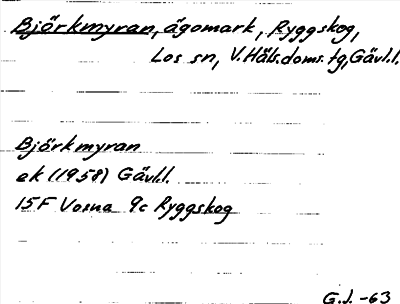 Björkmyran, ägomark, Ryggskog,
Los sn, V.Häls.doms.tg, Gävl.l.
Björkmyran
ek (1958) Gävl.l.
15F Voxna 9c Ryggskog
G.J. -63